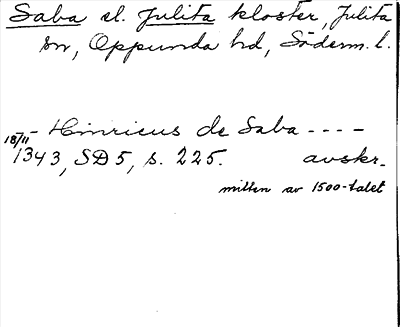 Saba el. Julita kloster, Julita
sn, Oppunda hd, Söderm. l.
- Hinricus de Saba - - - -
18/11 1343, SD 5, s. 225. avskr.
mitten av 1500-talet